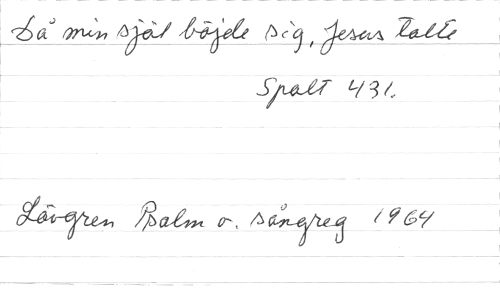 Då min själ böjde sig, Jesus talte
Spalt 431.
Lövgren Psalm o. sångreg 1964